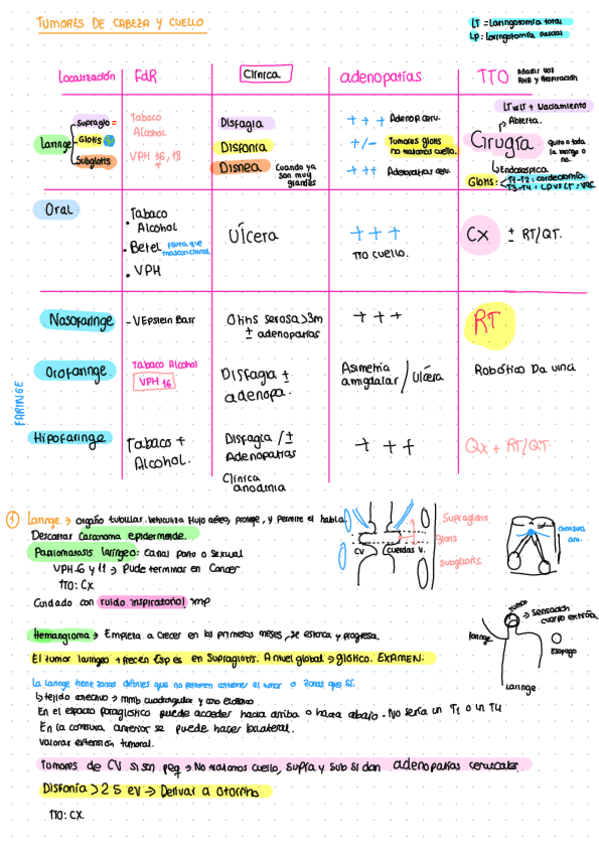 TUMORES DE CABEZA Y CUELLO
LT = Laringotomía total
LP: Laringotomía parcial
Localización FdR Clínica adenopatías TTO
Añadir voz
RHB y Respiración
Laringe
Supraglo =
Glotis
Subglotis
Tabaco
Alcohol
VPH 16, 18
Disfagia
Disfonía
Disnea
Cuando ya
son muy
grandes
+++ Adenop. cerv.
+/- Tumores glotis
no tratamos cuello.
+++ Adenopatías cerv.
LT + Vaciamiento
Abierta.
Cirugía
quito o toda
la laringe o
no.
Endoscópica
Glotis:
T1-T2: cordectomía
Oral
· Tabaco
Alcohol
· Betel
· VPH
Úlcera
+++
TTO cuello.
Cx ± RT/QT.
FARINGE
Nasofaringe
- VEpstein Barr
Otitis serosa >3m
± adenopatías
+++
RT
Orofaringe
Tabaco Alcohol
VPH 16
Disfagia ±
adenopa.
Asimetría
amigdalar / Úlcera
Robótico Da vinci
Hipofaringe
Tabaco +
Alcohol.
Disfagia / ±
Adenopatías
Clínica
anodinia
+++
Qx + RT/QT
1 Laringe → órgano tubular. Vehiculiza flujo aéreo, protege, y permite el habla.
Descartar Carcinoma epidermoide.
Papilomatosis laríngea: Canal parto o Sexual
VPH-6 y 11 → Pude terminar en Cancer
TTO: Cx
Cuidado con ruido inspiratorio! imp
CV
cuerdas V.
Supraglotis
glotis
Subglotis.
comisura
ant.
Hemangioma → Empieza a crecer en los primeros meses, se estanca y progresa.
El tumor laringeo + frecen Esp es en Supraglotis. A nivel global → glótico. EXAMEN.
tumor
→ Sensación
cuerpo extraño
laringe
Esofago
Laringe
La laringe tiene zonas débiles que no permiten contener el tumor o zonas que sí.
↳ tejido conectivo → mmb cuadrangular y cono elástico
En el espacio paraglótico puede acceder hacia arriba o hacia abajo. No sería un T1 o un T4
En la comisura anterior se puede hacer bilateral.
Valorar extensión tumoral.
Tumores de CV si son peq → No tratamos cuello, supra y sub si dan adenopatías cervicales.
Disfonía > 2 S ev → Derivar a Otorrino
TTO: CX.